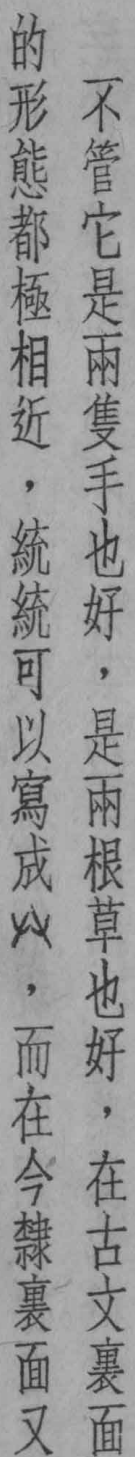 不管它是兩隻手也好，是兩根草也好，在古文裏面
的形態都極相近，統統可以寫成，而在今隸裏面又